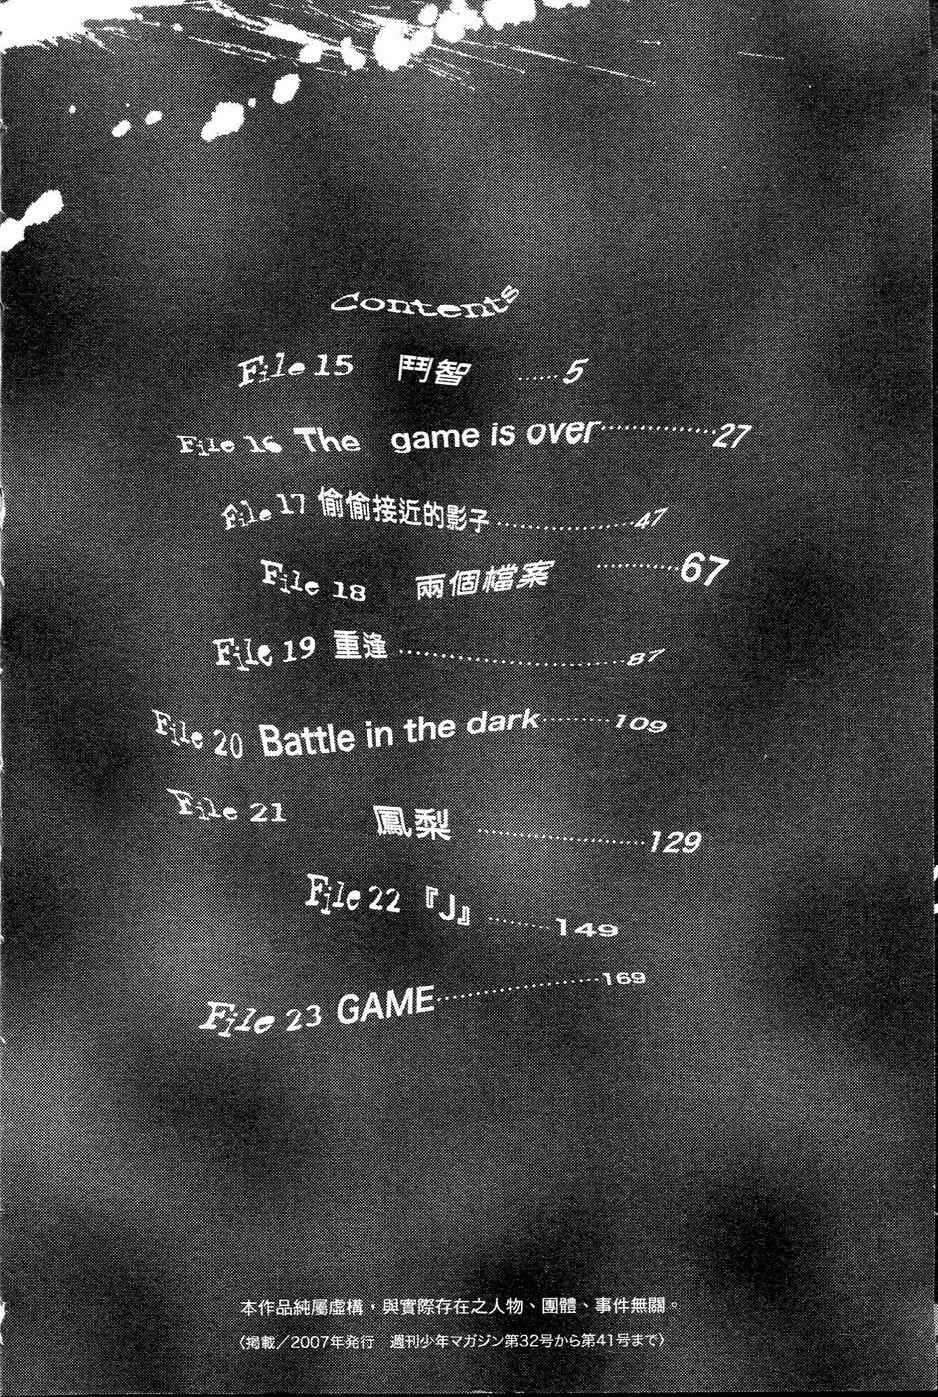 Contents
File 15 鬥智 ……5
File 16 The game is over…………27
File 17 偷偷接近的影子…………47
File 18 兩個檔案 …………67
File 19 重逢 …………87
File 20 Battle in the dark………109
File 21 鳳梨 …………129
File 22 『J』………149
File 23 GAME…………169
本作品純屬虛構，與實際存在之人物、團體、事件無關。
〈掲載／2007年発行 週刊少年マガジン第32号から第41号まで〉